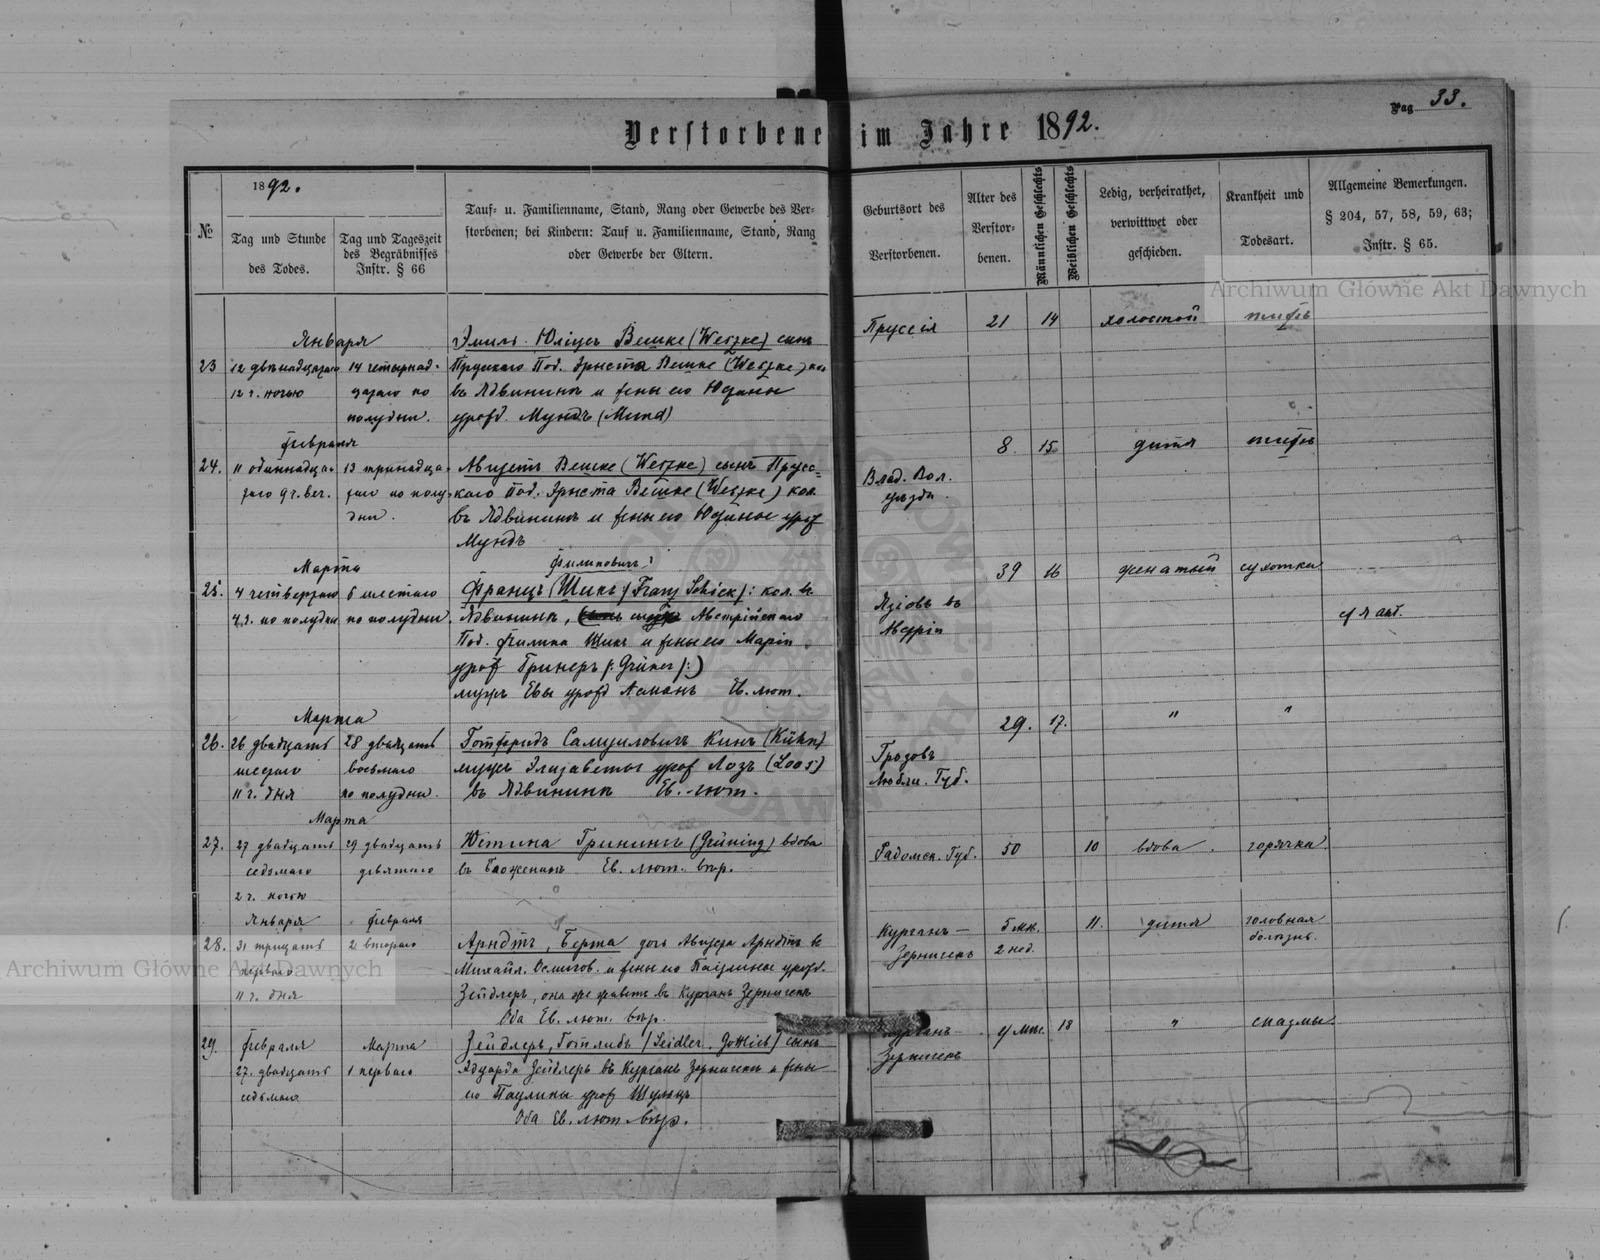 Pag 33.
Verstorbene im Jahre 1892.
№
1892.
Tag und Stunde
des Todes.
Tag und Tageszeit
des Begräbnisses
Instr. § 66
Tauf- u. Familienname, Stand, Rang oder Gewerbe des Ver-
storbenen; bei Kindern: Tauf u. Familienname, Stand, Rang
oder Gewerbe der Eltern.
Geburtsort des
Verstorbenen.
Alter des
Verstor-
benen.
Männlichen Geschlechts
Weiblichen Geschlechts
Ledig, verheirathet,
verwittwet oder
geschieden.
Krankheit und
Todesart.
Allgemeine Bemerkungen.
§ 204, 57, 58, 59, 63;
Instr. § 65.
Января
23
12 двѣнадцатаго
12 ч. ночью
14 четырнад-
цатаго по
полудни.
Эмиль Юліусъ Вешке (Weszke) сынъ
Прускаго Под. Эрнста Вешке (Weszke) кол
въ Ядвининѣ и жены его
урожд. Мундъ (Mund)
Пруссія
21
14
холостой
тифъ
Февраля
24.
11 одиннадца-
таго 9 ч. веч.
13 тринадца-
таго по полу-
дни.
Августъ Вешке (Weszke) сынъ Прусс-
каго Под. Эрнста Вешке (Weszke) кол.
въ Ядвининѣ и жены его урож
Мундъ
Влад. Вол.
уѣзда.
8
15
дитя
тифъ
Марта
25.
4 четвертаго
4 ч. по полудни
6 шестаго
по полудни.
Филиповичъ
Францъ Шикъ /Franz Schick/: кол. въ
Ядвининѣ, Австрійскаго
Под. Филипа Шикъ и жены его Маріи
урож Гринеръ /: Grüner /:)
мужъ Евы урожд Асманъ Ев. лют.
въ
Австріи
39
16
женатый
сухотка
Марта
26.
26 двадцать
шестаго
11 ч. дня
28 двадцать
восьмаго
по полудни.
Готфридъ Самуиловичъ Кинъ (Kühn)
мужъ Элизаветы урож Лозъ (Loos)
въ Ядвининѣ Ев. лют.
Любли. Губ.
29.
17.
"
"
Марта
27.
27 двадцать
седьмаго
2 ч. ночью
29 двадцать
девятаго
Юстина Гринингъ (Grüning) вдова
въ Ев. лют. вѣр.
Радомск. Губ.
50
10
вдова
горячка
Января
Февраля
28.
31 тридцать
перваго
11 ч. дня
2 втораго
Арндтъ, Берта дочь Августа Арндтъ въ
Михайл. и жены его Паулины урожд.
Зейдлеръ, она же живетъ въ Курганъ
Оба Ев. лют. вѣр.
Курганъ-
5 мѣс.
2 нед.
11.
дитя
головная
болѣзнь.
29.
Февраля
27. двадцать
седьмаго
Марта
1 перваго
Зейдлеръ, Готлибъ /Seidler, Gottlieb/ сынъ
Эдуарда Зейдлеръ въ Курганъ и жены
его Паулины урож Шульцъ
Оба Ев. лют. вѣр.
18
"
спазмы
Archiwum Główne Akt Dawnych
Archiwum Główne Akt Dawnych